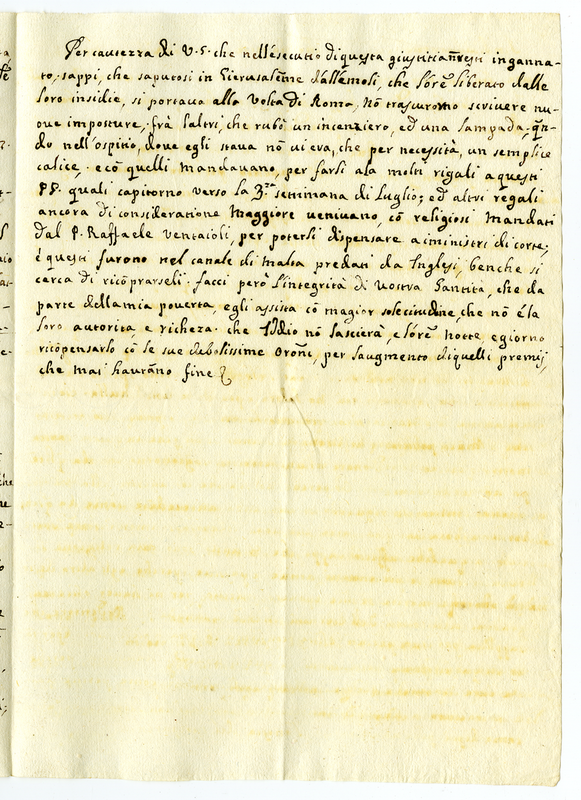 Per cautezza di V. S. che nell'esecutio di questa giustitia n̄resti inganna-
to, sappi, che saputosi in Gierusalem̄e dall'emoli, che l'ore liberato dalle
loro insidie, si portava alla volta di Roma, nō trascurorno scrivere nu-
ove imposture, frà l'altri, che rubò un incenziero, ed una lampada, qn̄-
do nell'ospitio, dove egli stava nō vi era, che per necessità, un semplice
calice, e cō quelli mandavano, per farli a la molti rigali a questi
PP. quali capitorno verso la 3.ᵃ settimana di Luglio; ed altri regali
ancora di consideratione maggiore venivano, cō religiosi mandati
dal P. Raffaele Ventaioli, per poterli dispensare a i ministri di corte;
è questi furono nel canale di Malta predati da Inglesi, benche si
cerca di ricōprarseli. facci però l'integrità di Vostra Santità, che da
parte della mia povertà, egli assista cō magior solecitudine, che nō è la
loro autorità e richeza. che Iddio nō lascierà, e l'ore notte, e giorno
ricōpensarlo cō le sue debolissime oron̄i, per l'augmento di quelli premij,
che mai haurāno fine